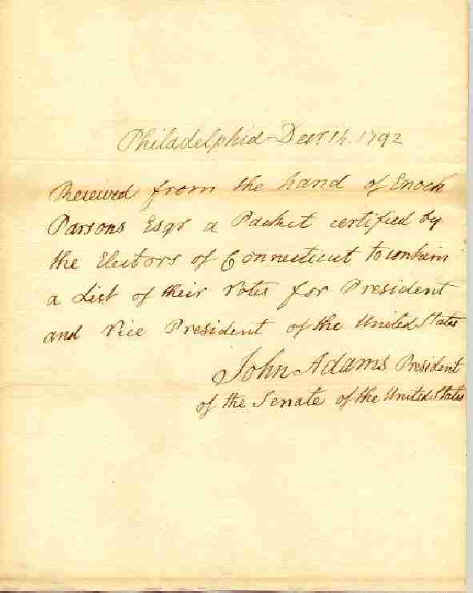 Philadelphia Decr 14. 1792
Received from the hand of Enoch
Parsons Esqr a Packet certified by
the Electors of Connecticut to contain
a List of their Votes for President
and Vice President of the United States
John Adams President
of the Senate of the United States